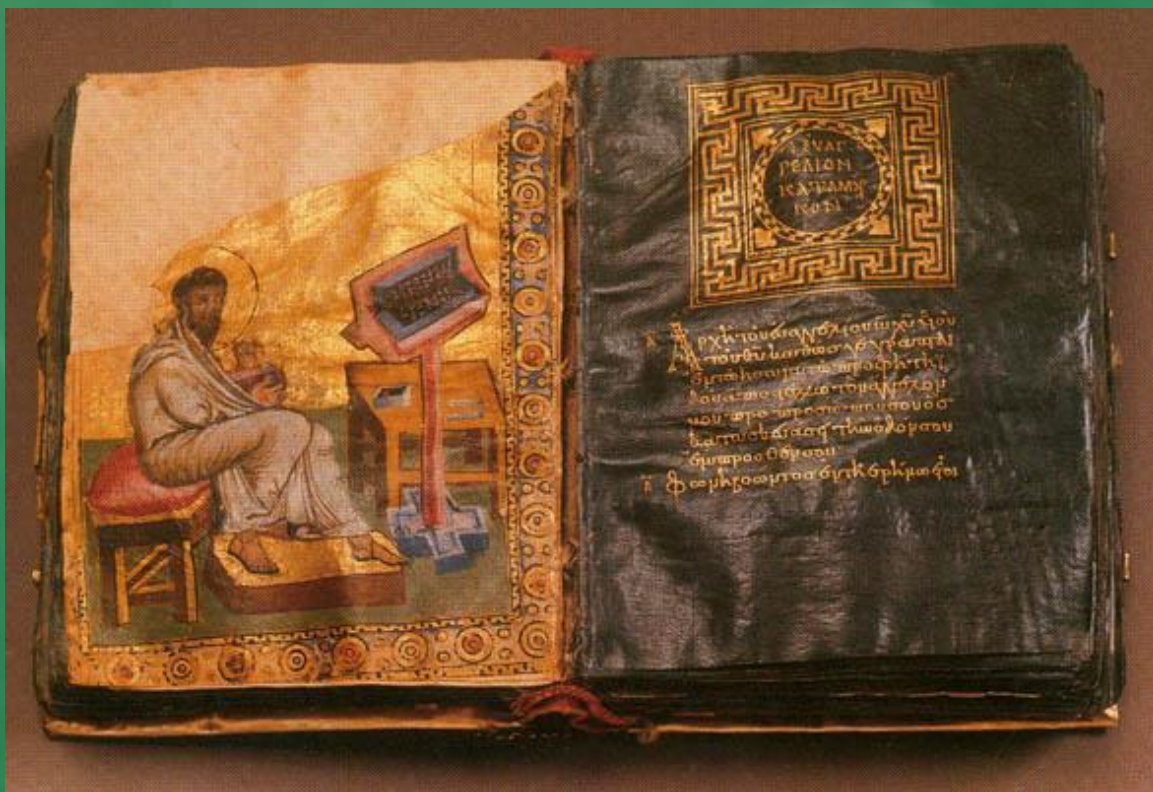 ΕΥΑΓ
ΓΕΛΙΟΝ
ΚΑΤΑ ΜΑΡ
ΚΟΝ
Ἀρχὴ τοῦ εὐαγγελίου ἰυ χυ υἱοῦ
τοῦ θυ καθὼς γέγραπται
ἐν τῷ προφήτη ἰ
δοὺ ἀποστέλλω τὸν ἄγγελόν
μου πρὸ προσώπου σου ὃς
κατασκευάσει τὴν ὁδόν σου
ἔμπροσθέν σου
φωνὴ βοῶντος ἐν τῇ ἐρήμω ἑτοι